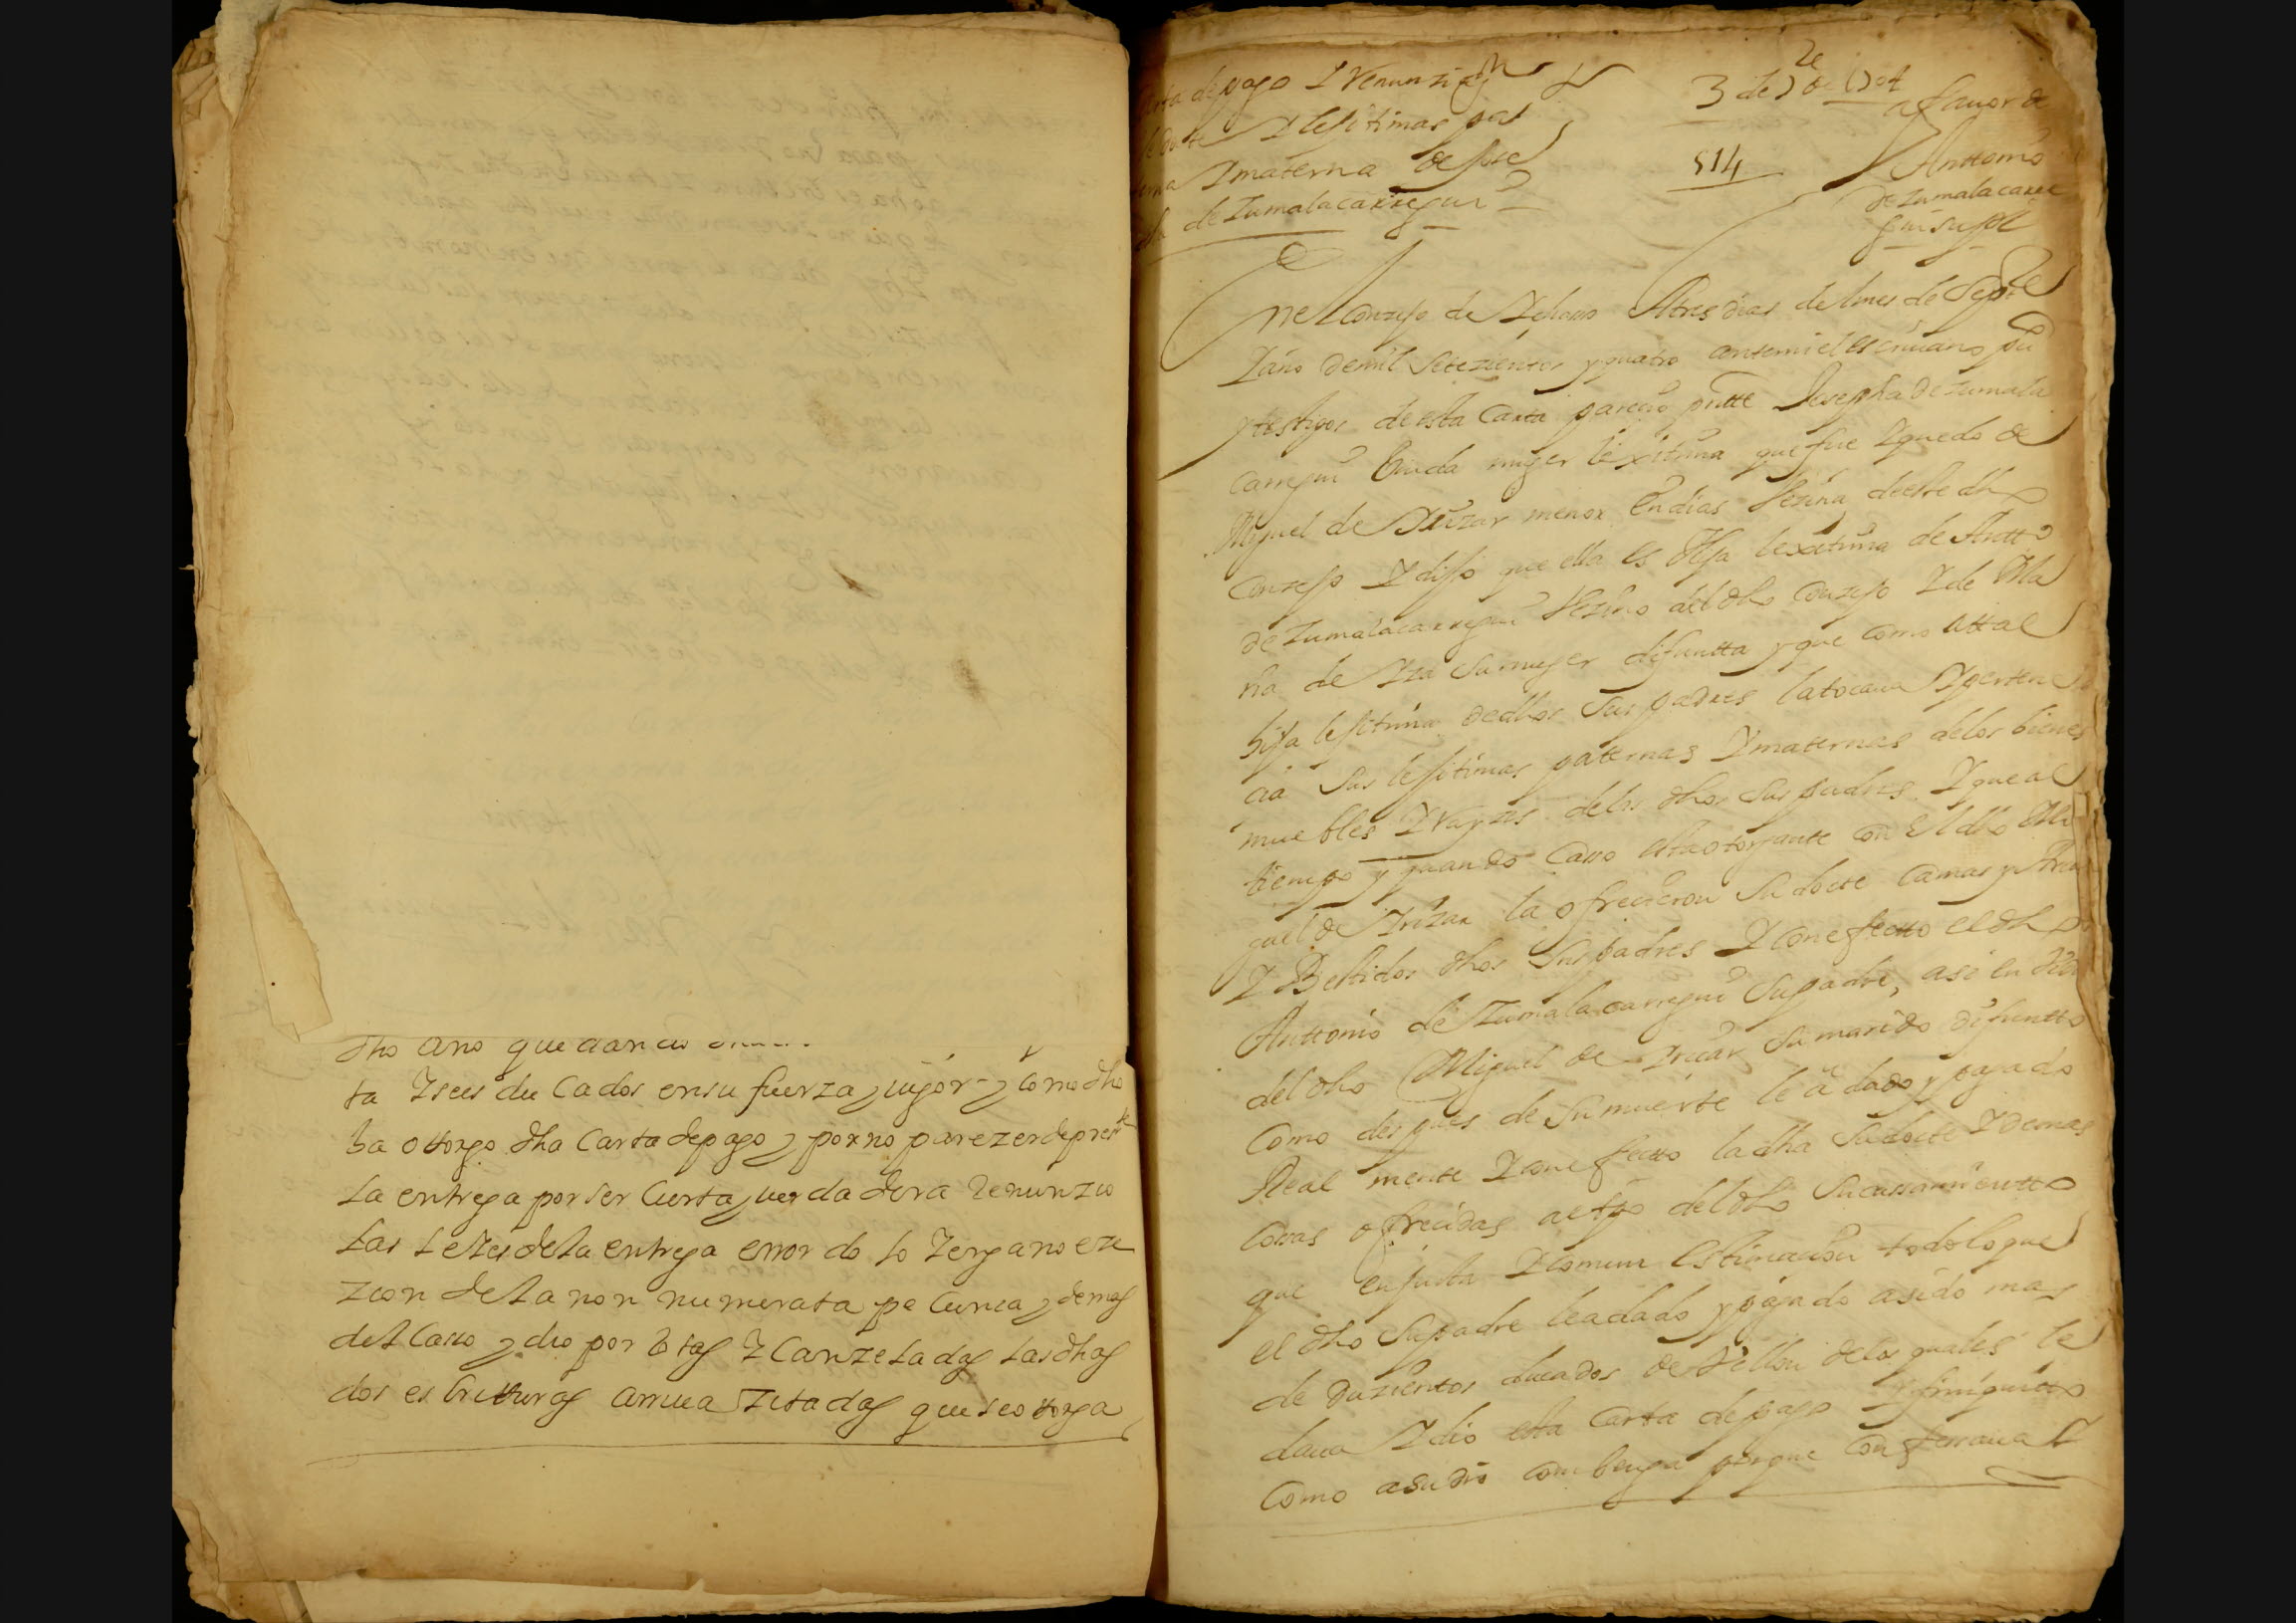 dho año que
ta Iseis ducados ensu fuerza y uigor y como dho
ba ottorgo dha Carta depago y porno parezerdepresᵗᵉ
La entrega porser Cierta y uerdadera Renunzio
Las Leies dela entrega error do lo Iengano eze
zion dela non numerata pecunia y demas
del Caso y dio por Rotas I Canzeladas Las dhas
dos escritturas arriua Zitadas que seottorga
Carta depago I Renunziaᵒⁿ
Dotte I lesitimas pat
erna Imaterna de Jose
pha de Zumalacarregui
3 de 7ᵇʳᵉ 1704
514
a fauor de
Anttonio
de Zumalacarre
gui su pᵉ
Enel Conzejo de Astres dias del mes de Sepᵗᵉ
Iaño demil Setezientos y quatro antemi el escriuano pu
y testigos de esta Carta parecio presᵗᵉ Josepha de Zumala
Carregui Biuda muger lexitima que fue Iquedo de
Miguel de Yrizar menor en dias Vezina deeste dho
Conzejo I dijo que ella es Hija lexitima de Antto
de Zumalacarregui Vezino del dho Conzejo Ide Ma
ria de Iza Sumuger difuntta y que como atal
hija lesitima dedhos Sus padres latocaua Ipertene
cia Sus lesitimas paternas Imaternas delos bienes
muebles I rayzes delos dhos Sus padres I que al
tiempo y quando Caso esta otorgante con el dho Mi
guel de Yrizar la ofrecieron Su dotte Camas y
I Bestidos dhos Sus padres I conefectto el dho
Anttonio de Zumalacarregui Su padre, asi en Vida
del dho Miguel de Yrizar Su marido difuntto
Como despues de Sumuerte le a dado y pagado
Real mente I conefectto la dha Su dotte I demas
Cosas ofrecidas altpo del dho Su casamientto
que en justa I comun estimacion todo lo que
el dho Su padre leadado y pagado asido mas
de Duzientos ducados de Vellon delos quales le
daua I dio esta Carta depago I finiquitto
Como asu dro combenga porque confesaua